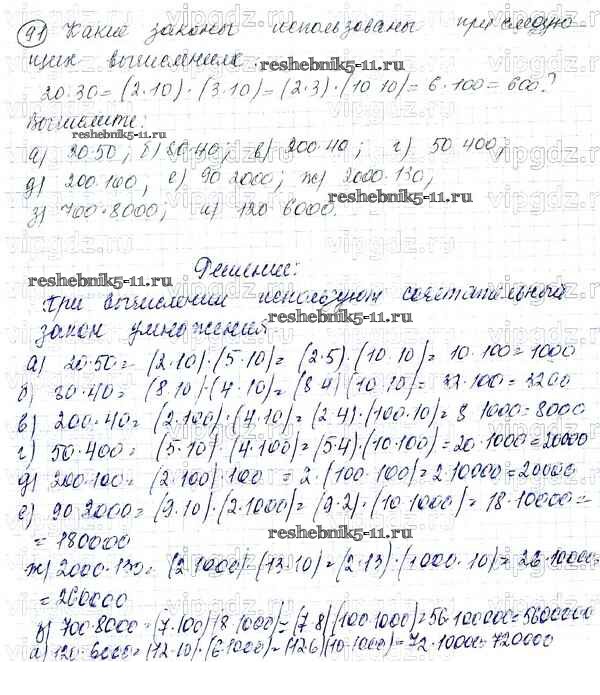 91) Какие законы использованы при следую-
щих вычислениях
20·30=(2·10)·(3·10)=(2·3)·(10·10)=6·100=600?
reshebnik5-11.ru
Вычислите:
reshebnik5-11.ru
а) 20·50; б) 80·40; в) 200·40; г) 50·400;
д) 200·100; е) 90·2000; ж) 2000·130;
з) 700·8000; и) 120·6000.
reshebnik5-11.ru
Решение:
reshebnik5-11.ru
При вычислении используют сочетательный
закон умножения.
reshebnik5-11.ru
а) 20·50=(2·10)·(5·10)=(2·5)·(10·10)=10·100=1000
б) 80·40=(8·10)·(4·10)=(8·4)(10·10)=32·100=3200
в) 200·40=(2·100)·(4·10)=(2·4)·(100·10)=8·1000=8000
г) 50·400=(5·10)·(4·100)=(5·4)·(10·100)=20·1000=20000
д) 200·100=(2·100)·100=2·(100·100)=2·10000=20000
е) 90·2000=(9·10)·(2·1000)=(9·2)·(10·1000)=18·10000=
=180000
reshebnik5-11.ru
ж) 2000·130=(2·1000)·(13·10)=(2·13)·(1000·10)=26·10000=
=260000
з) 700·8000=(7·100)(8·1000)=(7·8)(100·1000)=56·100000=5600000
и) 120·6000=(12·10)·(6·1000)=(12·6)(10·1000)=72·10000=720000